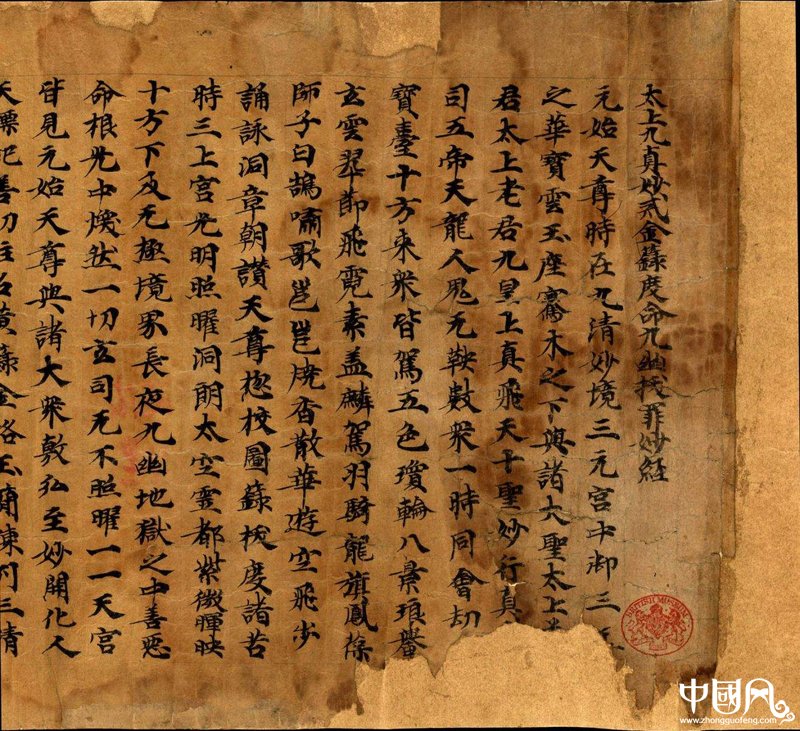 太上九真妙戒金籙度命九幽拔罪妙經
元始天尊時在九清妙境三元宮中御三
之華寶雲玉座騫木之下與諸大聖太上
君太上老君九皇上真飛天十聖妙行真
司五帝天龍人鬼无鞅數衆一時同會劫
寶臺十方来衆皆駕五色瓊輪八景琅轝
玄雲翠節飛霓素盖麟駕羽騎龍旗鳳葆
師子白鵠嘯歌邕邕燒香散華遊空飛步
誦詠洞章朝讚天尊揔校圖籙拔度諸苦
時三上宮光明照曜洞朗太空靈都紫微暉映
十方下及无極境界長夜九幽地獄之中善惡
命根光中煥然一切玄司无不照曜一一天宮
皆見元始天尊與諸大衆敷弘至妙開化人
善功
BRITISH MUSEUM
中國风
www.zhongguofeng.com